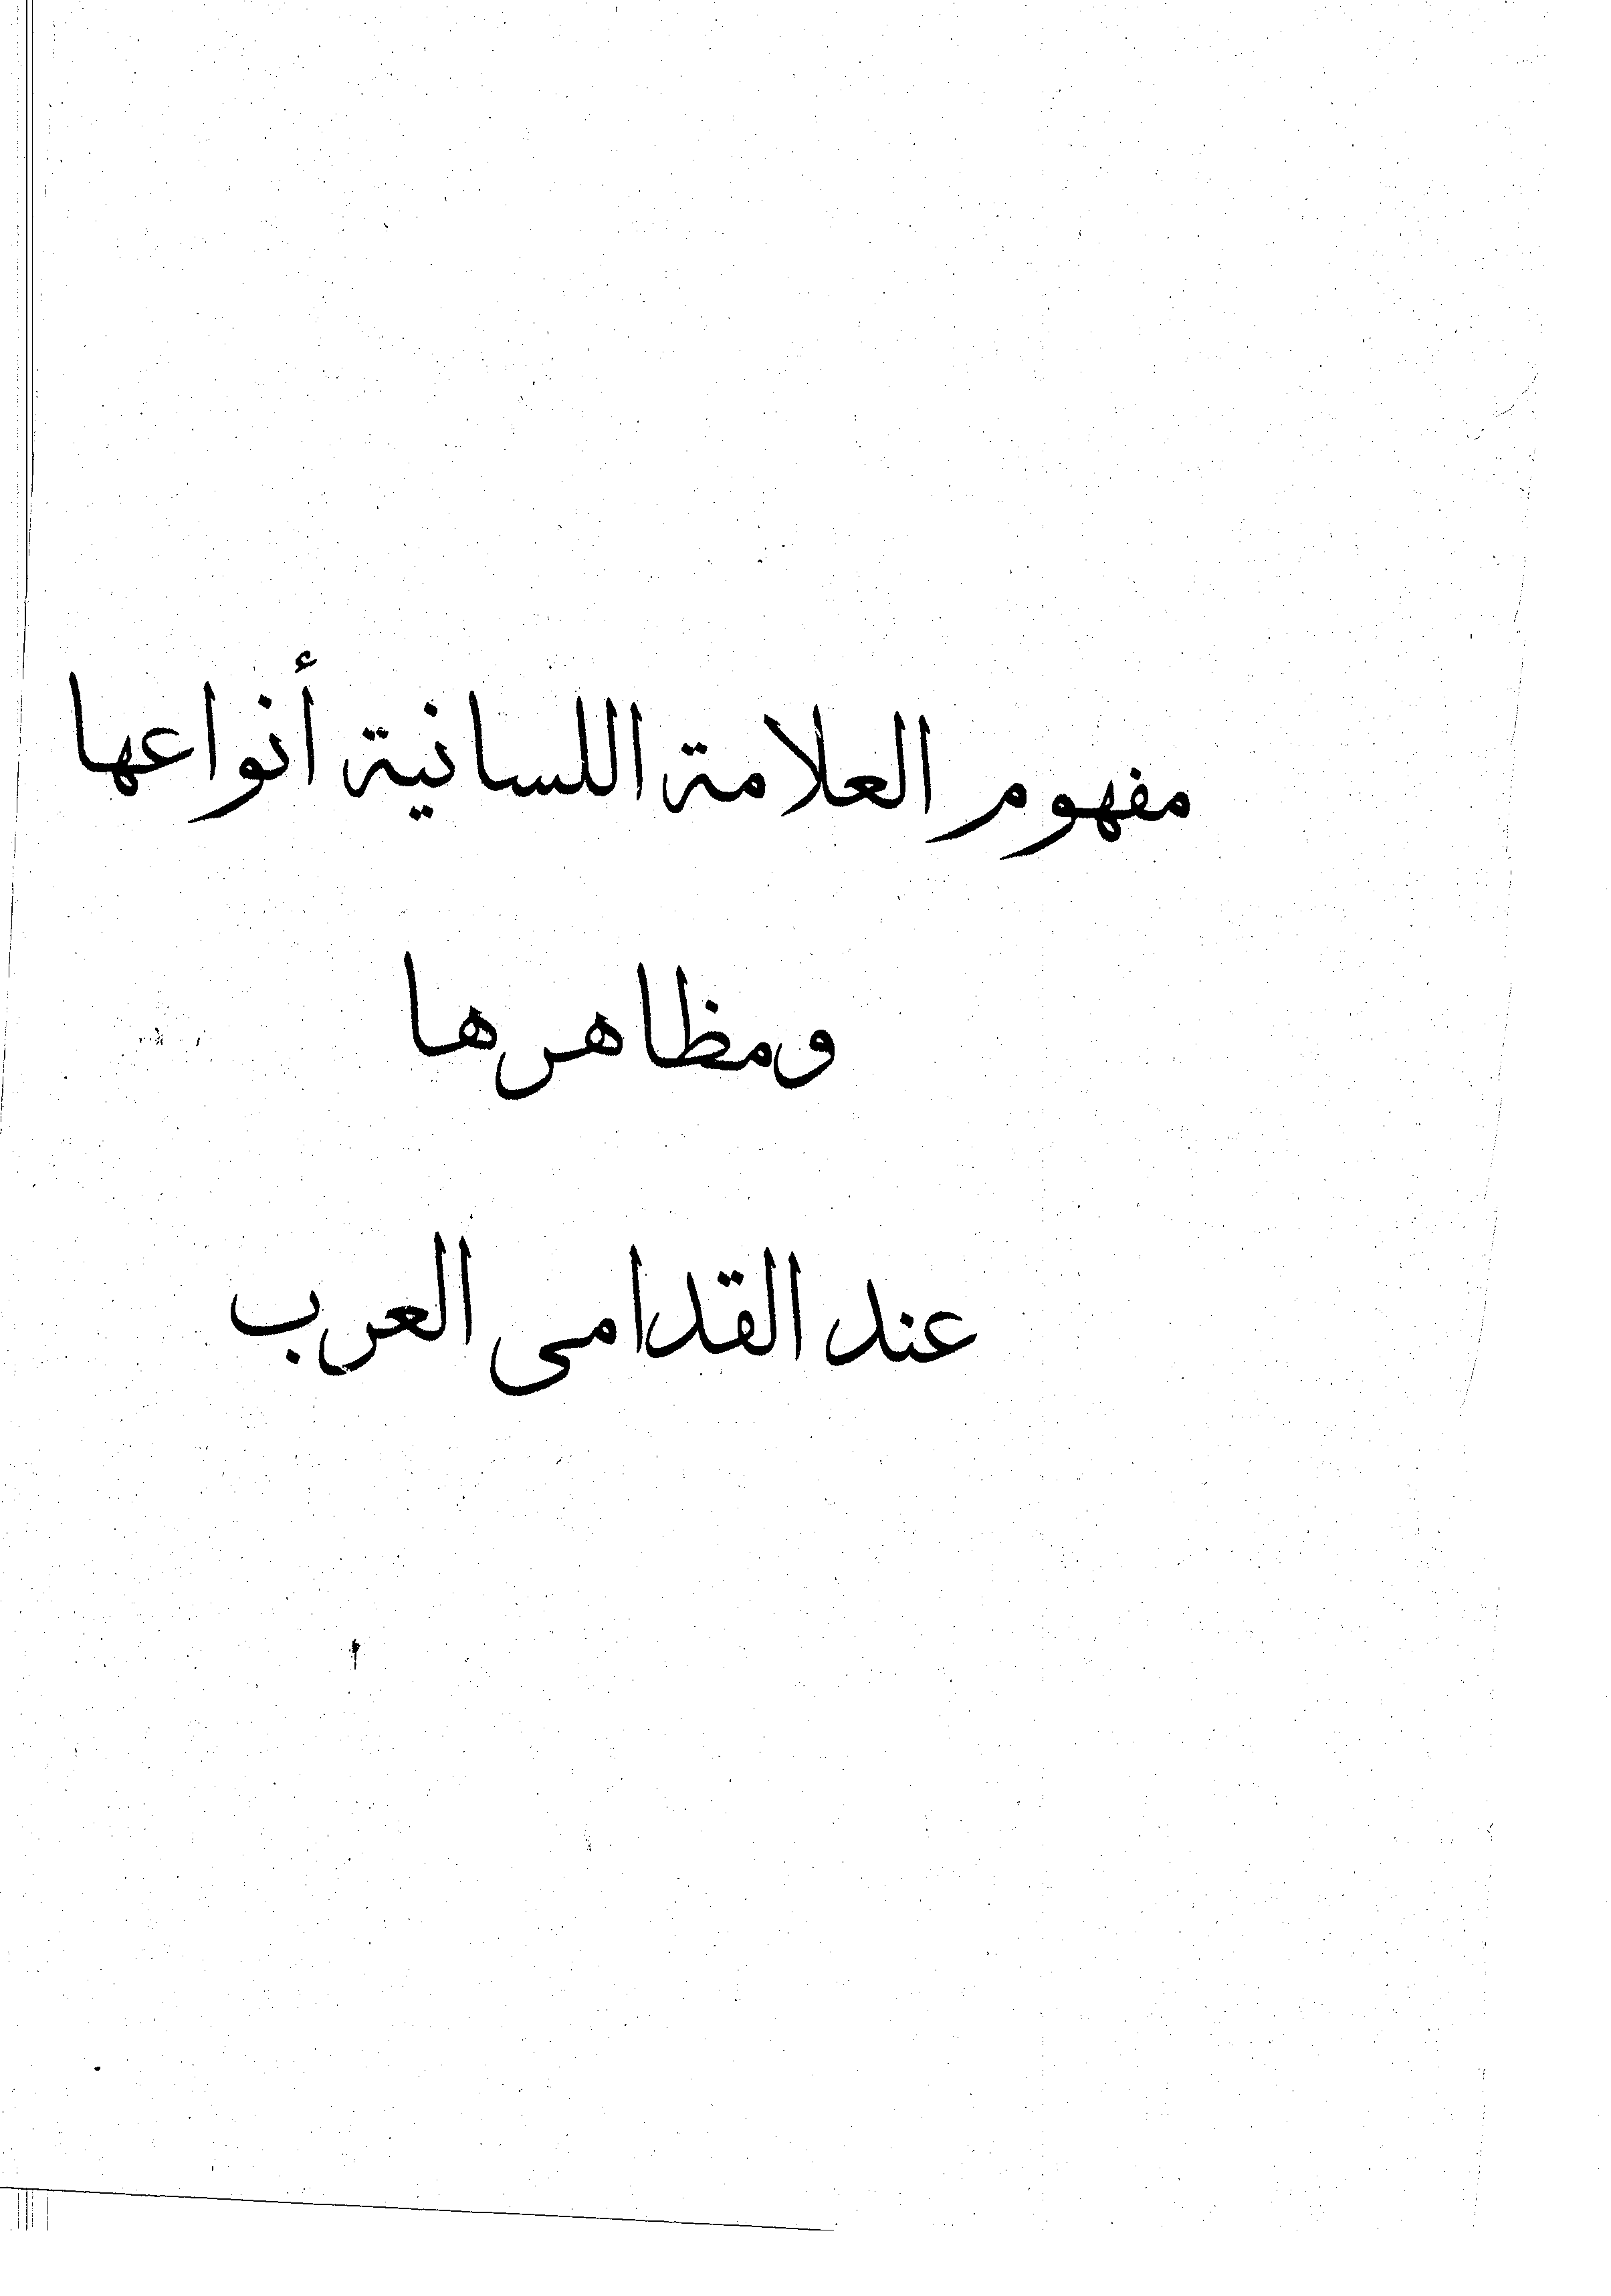 مفهوم العلامة اللسانية أنواعها
ومظاهرها
عند القدامى العرب